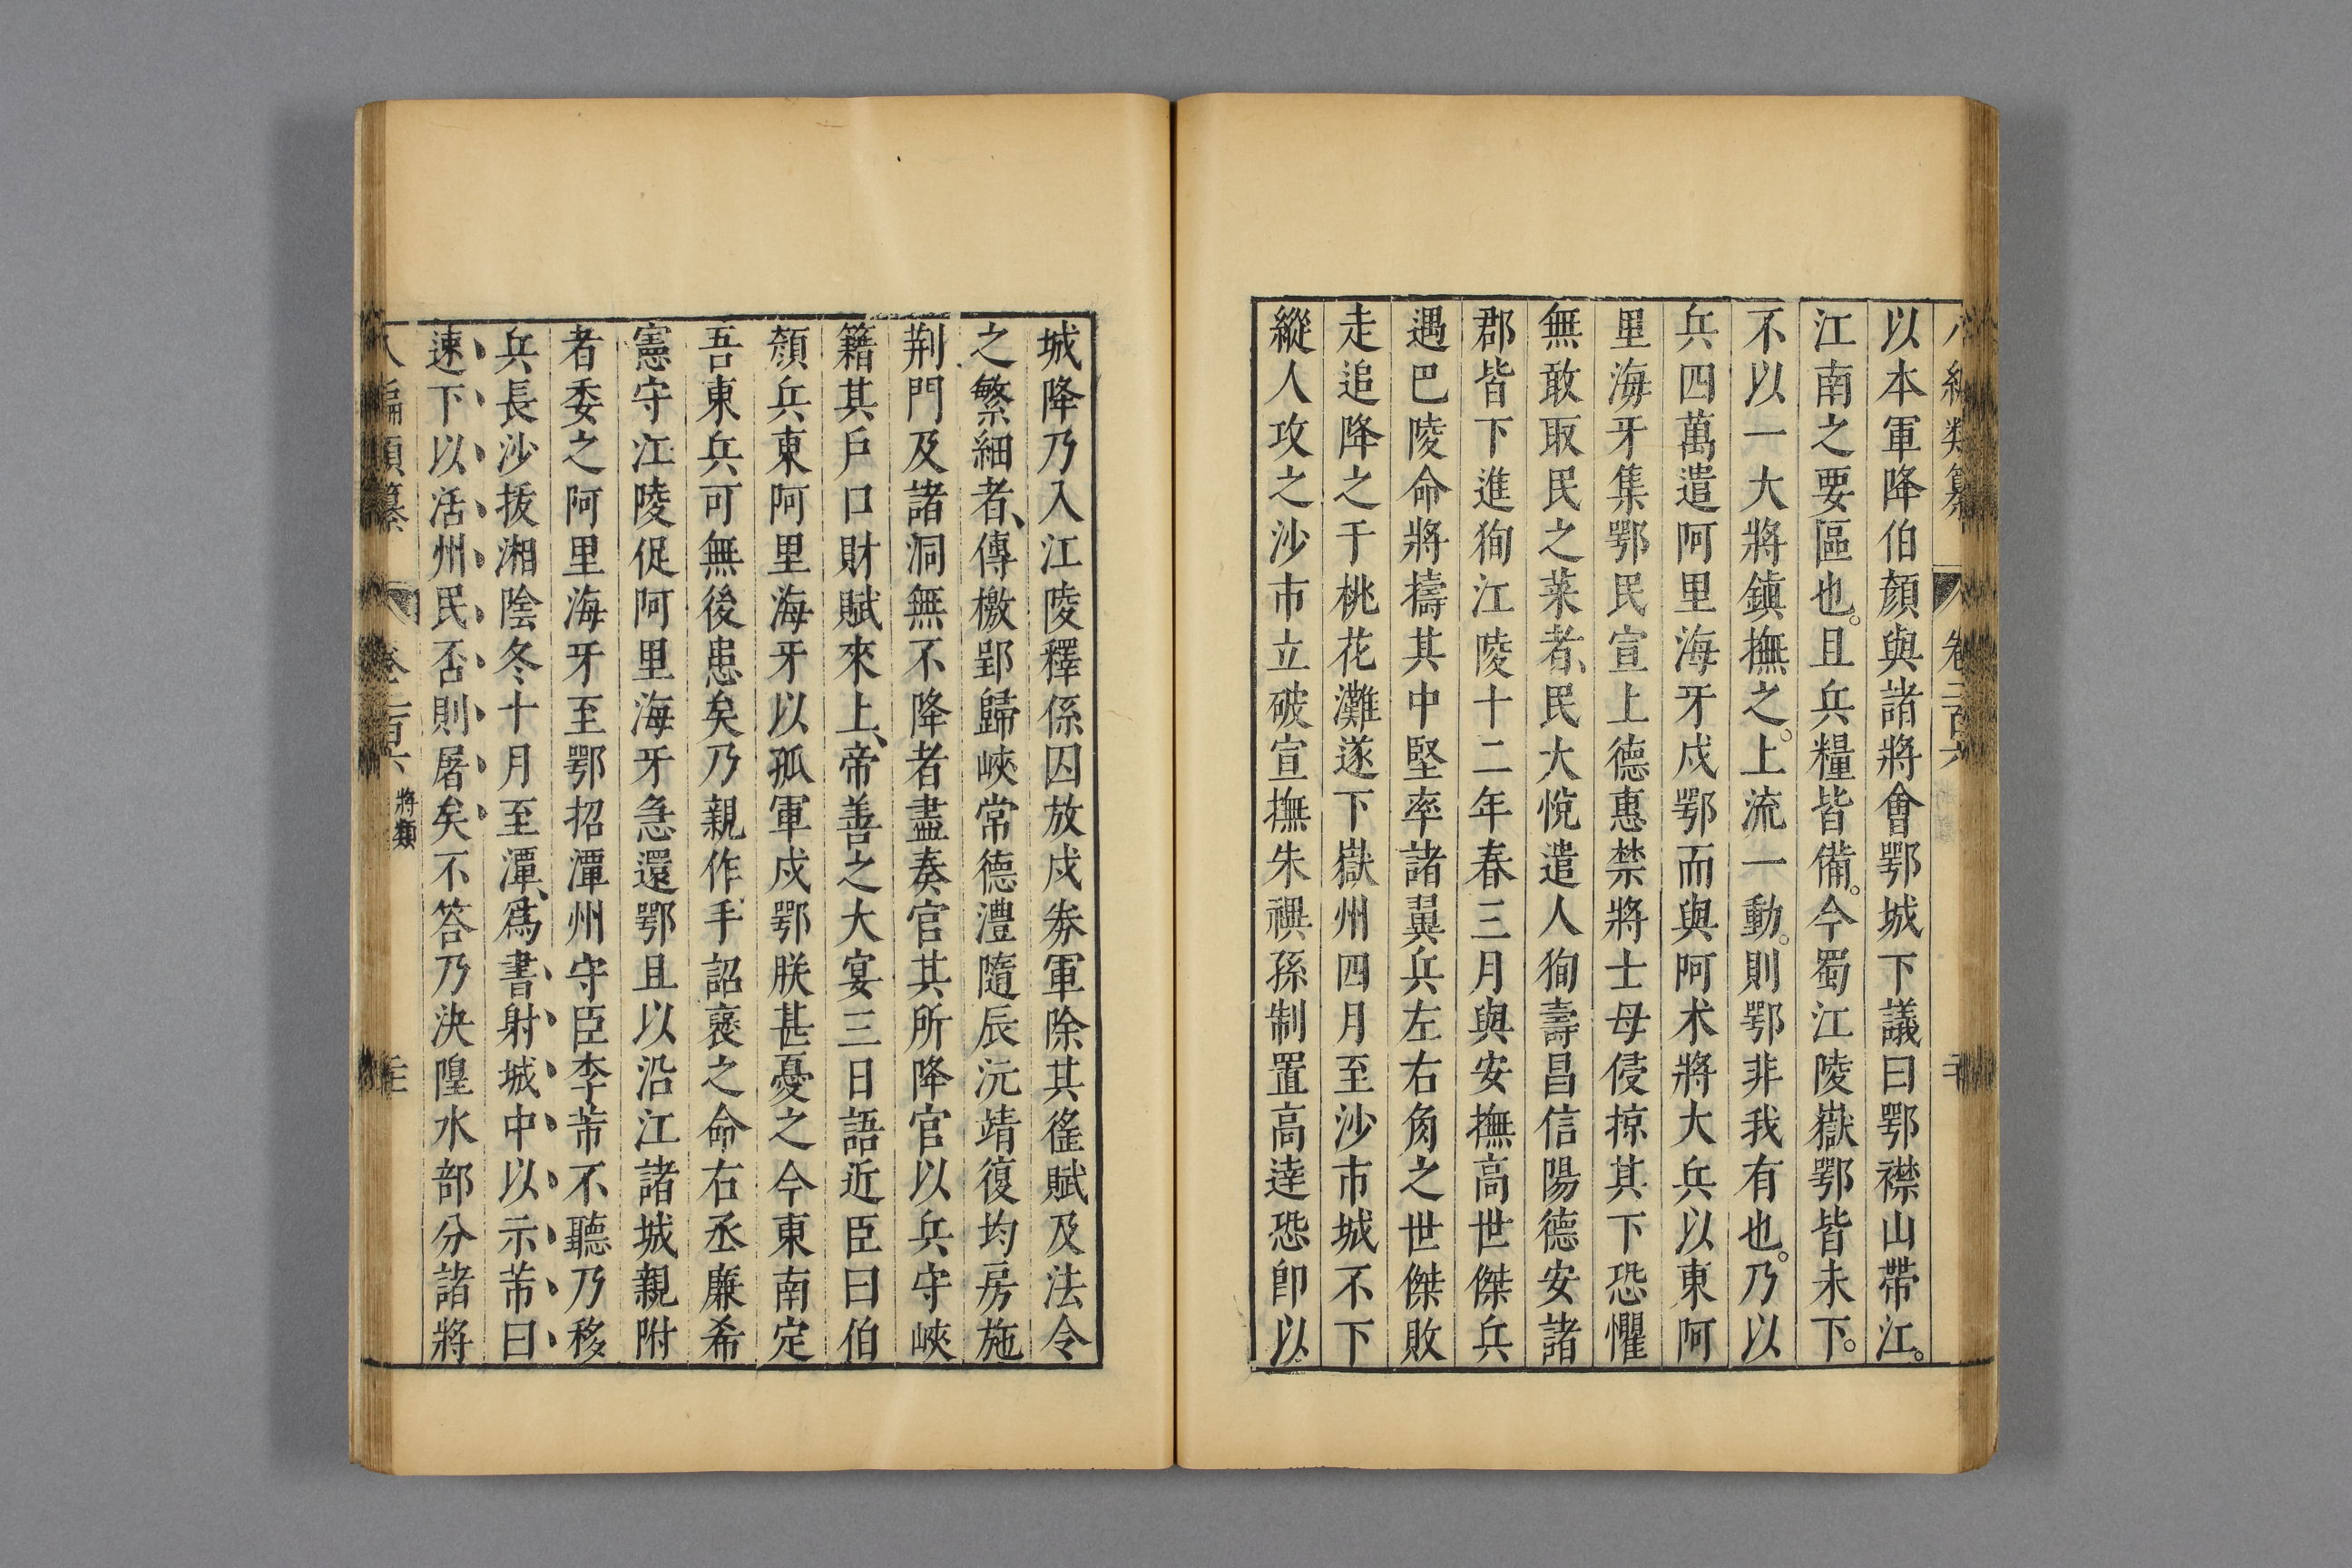 以本軍降伯顏與諸將會鄂城下議曰鄂襟山帶江。
江南之要區也。且兵糧皆備。今蜀江陵嶽鄂皆未下。
不以一大將鎮撫之。上流一動。則鄂非我有也。乃以
兵四萬遣阿里海牙戍鄂而與阿术將大兵以東阿
里海牙集鄂民宣上德惠禁將士毋侵掠其下恐懼
無敢取民之菜者、民大悅遣人狥壽昌信陽德安諸
郡皆下進狥江陵十二年春三月與安撫高世傑兵
遇巴陵命將擣其中堅率諸翼兵左右角之世傑敗
走追降之于桃花灘遂下嶽州四月至沙市城不下
縱人攻之沙市立破宣撫朱禩孫制置高逹恐即以
城降乃入江陵釋係囚放戍券軍除其徭賦及法令
之繁細者、傳檄郢歸峽常德澧隨辰沅靖復均房施
荆門及諸洞無不降者盡奏官其所降官以兵守峽
籍其戶口財賦來上、帝善之大宴三日語近臣曰伯
顏兵東阿里海牙以孤軍戍鄂朕甚憂之今東南定
吾東兵可無後患矣乃親作手詔襃之命右丞廉希
憲守江陵促阿里海牙急還鄂且以沿江諸城親附
者委之阿里海牙至鄂招潭州守臣李芾不聽乃移
兵長沙拔湘陰冬十月至潭、爲書射城中以示芾曰
速下以活州民否則屠矣不答乃決隍水部分諸將
八編類纂 卷二百六 將類